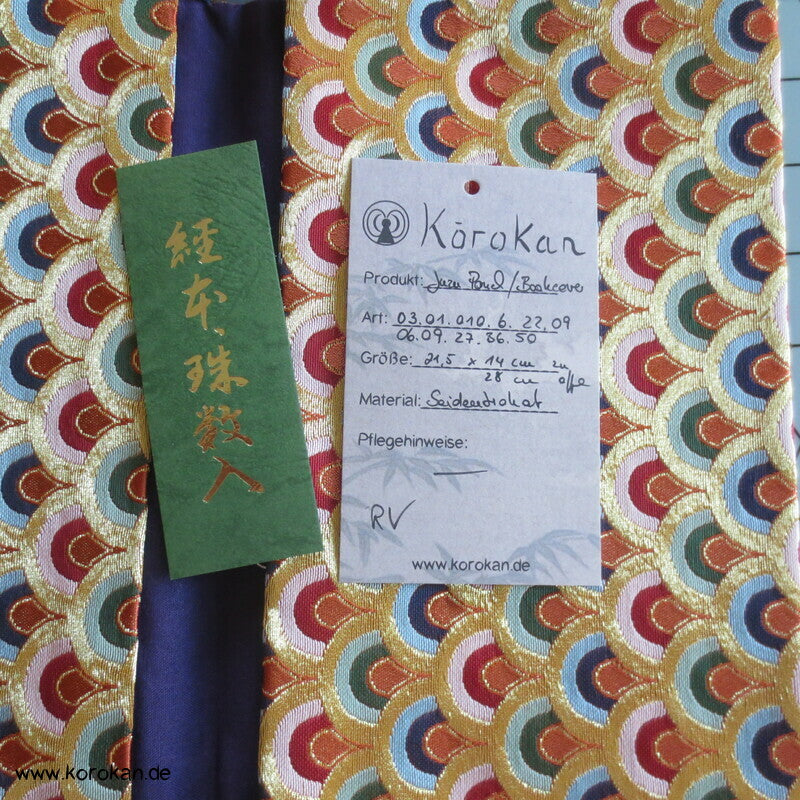 経本、珠数入
Kōrokan
Produkt: Juzu Pouch/Bookcover
Art: 03.01.010.6.22.09
06.09.27.86.50
Größe: 21,5 x 14 cm zu
28 cm offe
Material: Seidenbrokat
Pflegehinweise:
RV
www.korokan.de
www.korokan.de